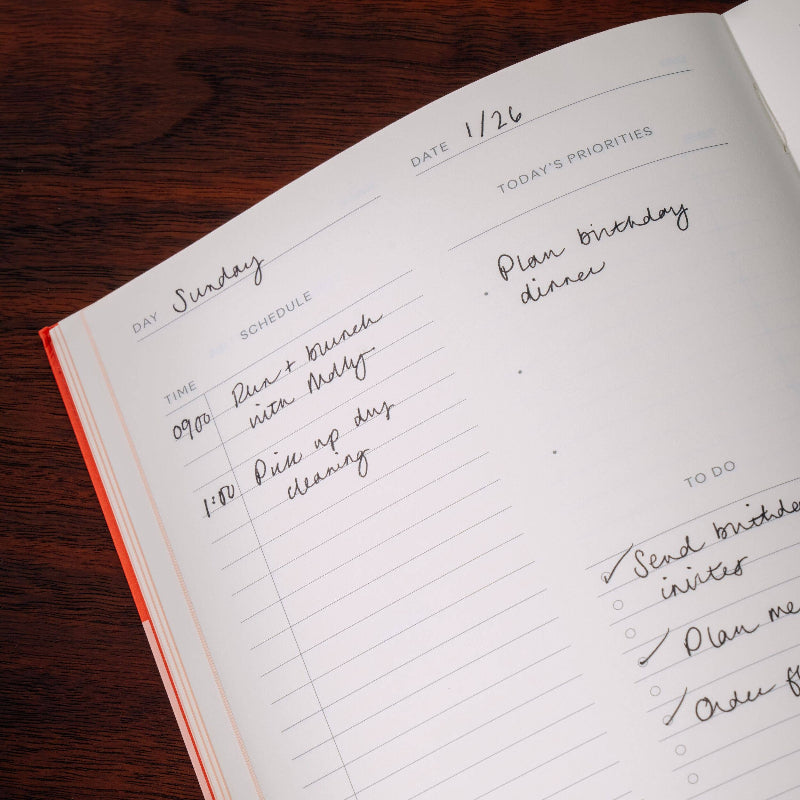 DATE 1/26
DAY Sunday
SCHEDULE
TIME
0900 Run + brunch
with Molly
1:00 Pick up dry
cleaning
TODAY'S PRIORITIES
Plan birthday
dinner
TO DO
Send
invites
Plan
Order